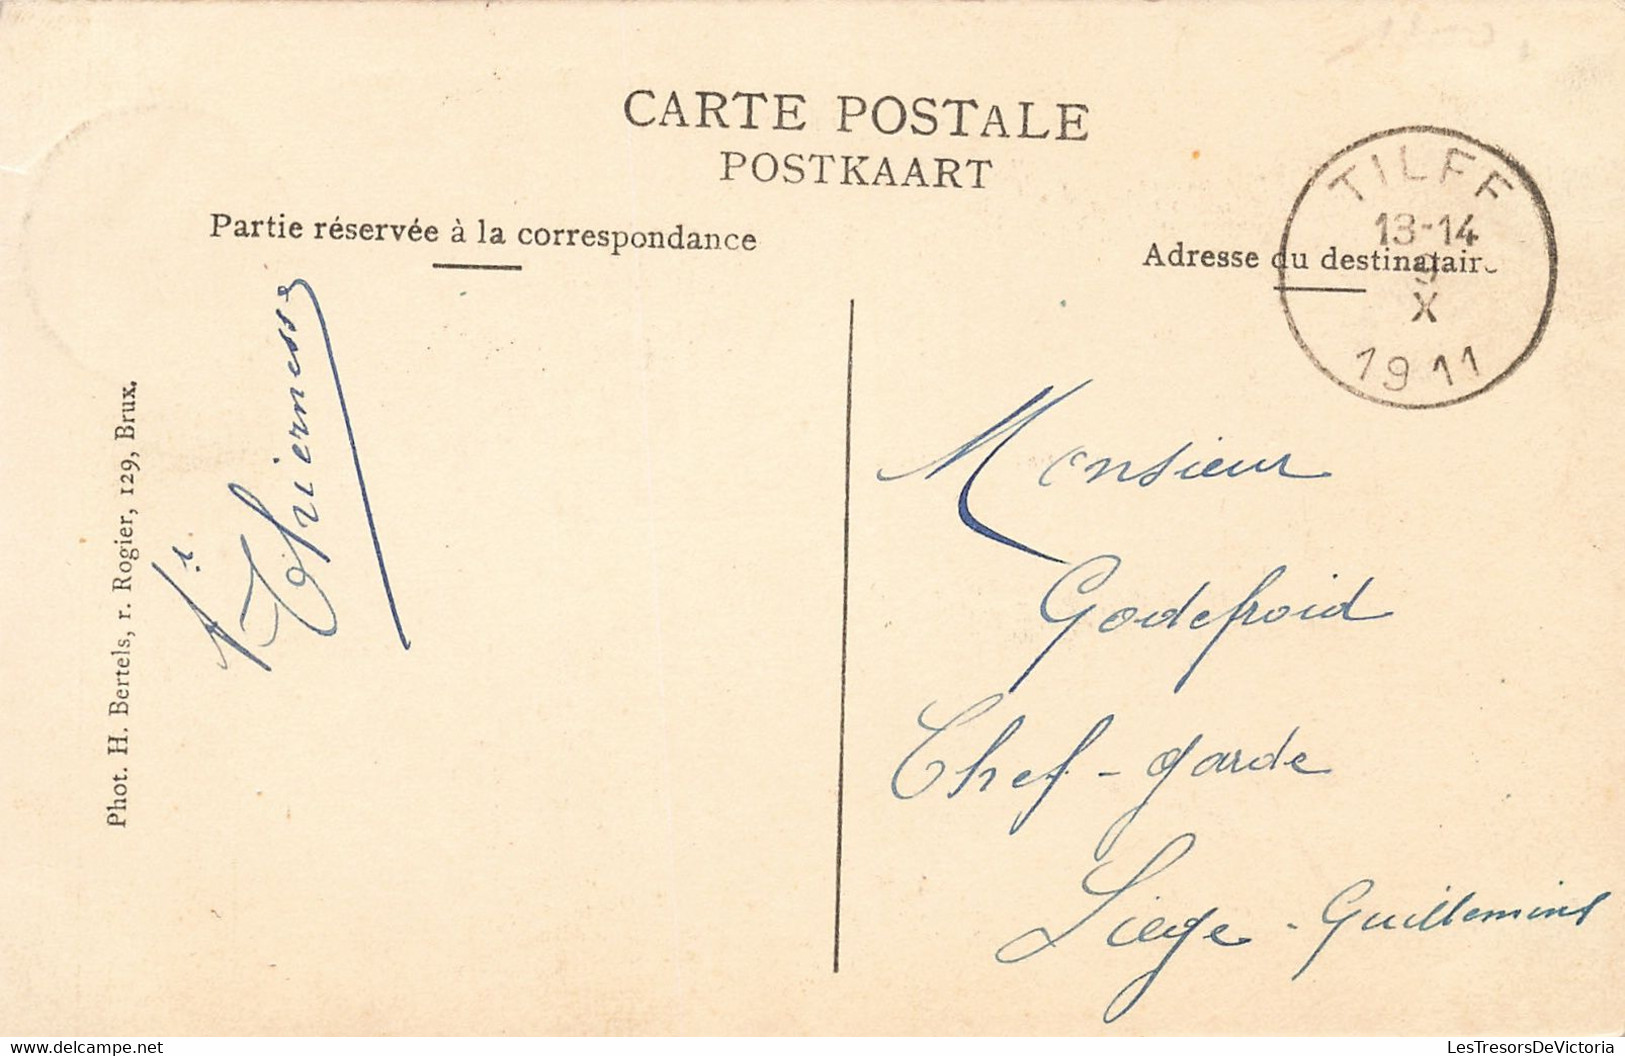 CARTE POSTALE
POSTKAART
Partie réservée à la correspondance
Adresse du destinataire
TILFF
13-14
9
X
1911
Phot. H. Bertels, r. Rogier, 129, Brux.
Thiernesse
Monsieur
Godefroid
Chef-garde
Liège-Guillemins
LesTresorsDeVictoria